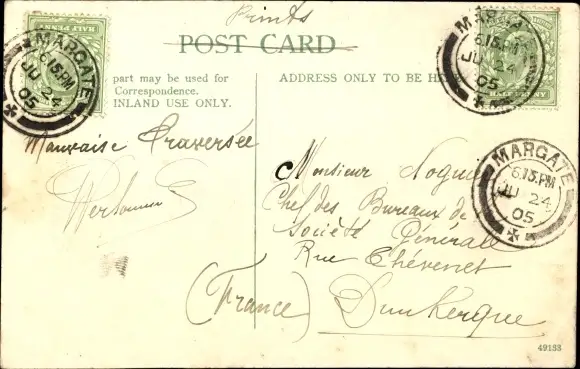 Prints
POST CARD
part may be used for
Correspondence.
INLAND USE ONLY.
ADDRESS ONLY TO BE
HALF PENNY
MARGATE
6.15.PM
JU 24
05
HALF PENNY
MARGATE
6.15.PM
JU 24
05
MARGATE
6.15.PM
JU 24
05
Mauvaise Traversée
Monsieur
Chef des Bureaux de
Société Générale
Rue Thévenet
(France) Dunkerque
49133